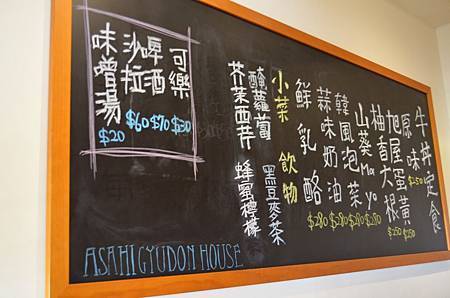 牛丼定食
原味 $250
旭屋蛋黃 $250
柚香大根 $250
山葵Mayo $280
韓風泡菜 $280
蒜味奶油 $280
鮮乳酪 $280
小菜
醃蘿蔔
芥茉西芹
飲物
黑豆麥茶
蜂蜜檸檬
可樂 $30
啤酒 $70
沙拉 $60
味噌湯 $20
ASAHI GYUDON HOUSE